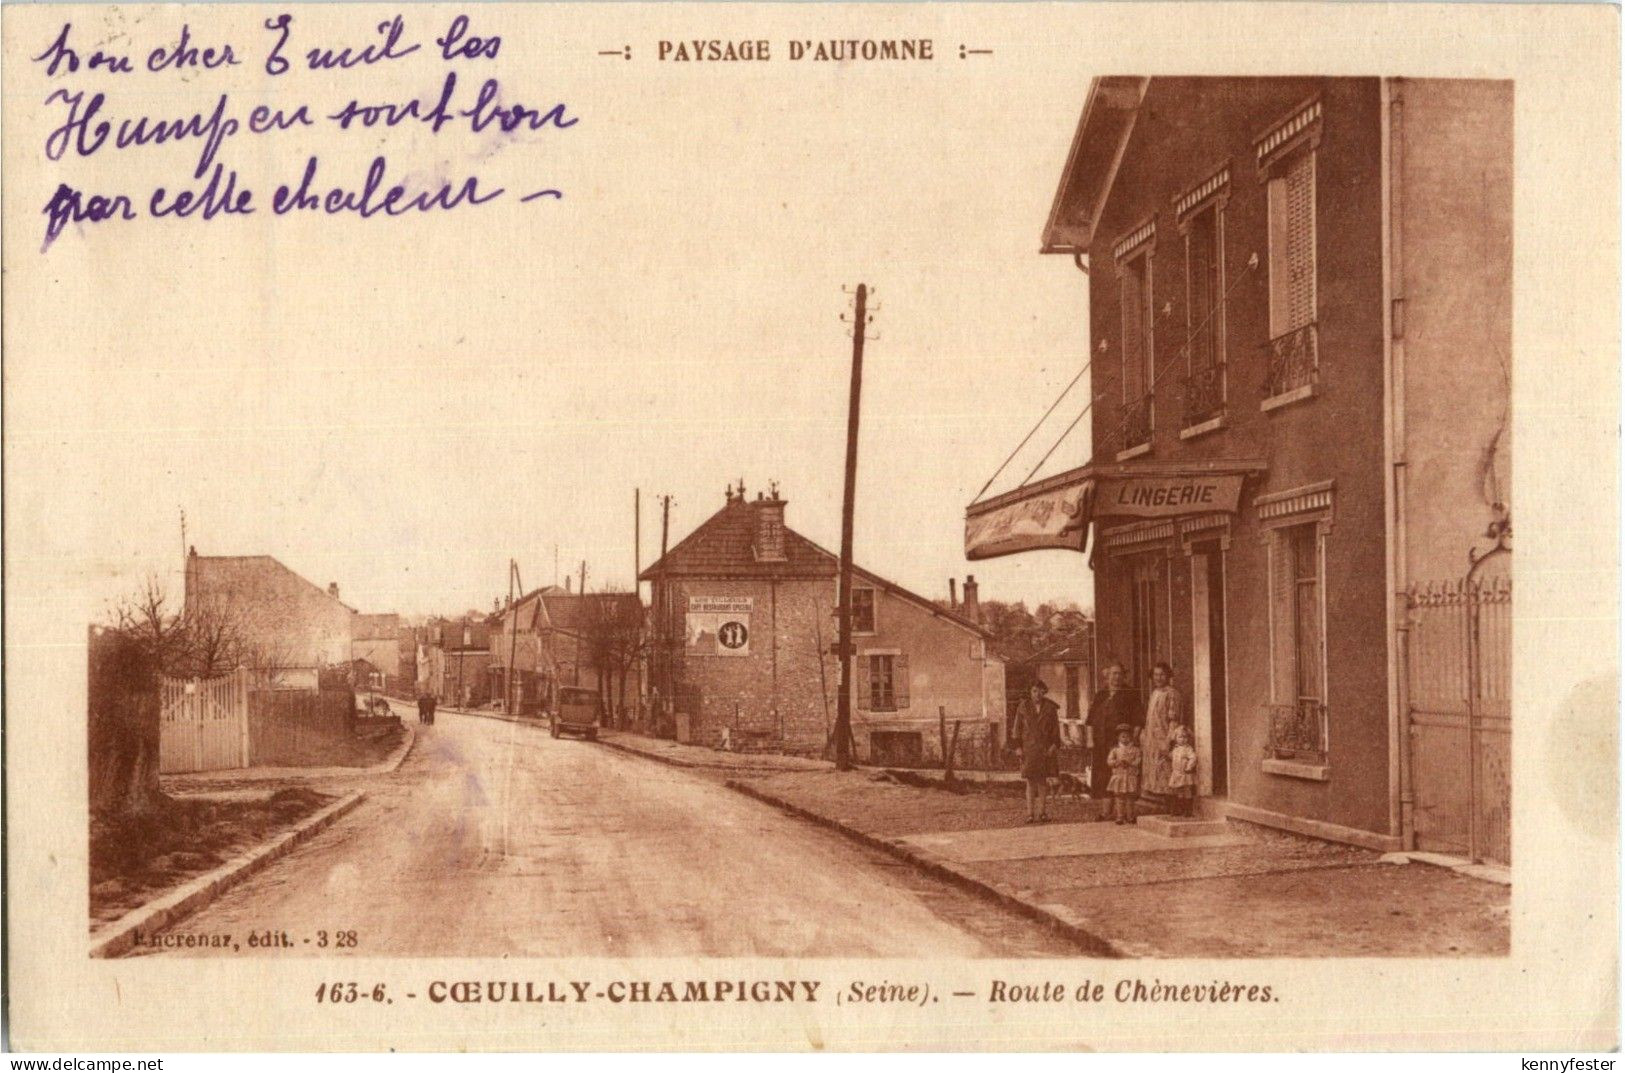 Mon cher Emil les
Humpen sont bon
par cette chaleur –
—: PAYSAGE D'AUTOMNE :—
LINGERIE
CAFE RESTAURANT EPICERIE
Encrenaz, édit. - 3 28
163-6. - CŒUILLY-CHAMPIGNY (Seine). — Route de Chènevières.
www.delcampe.net
kennyfester